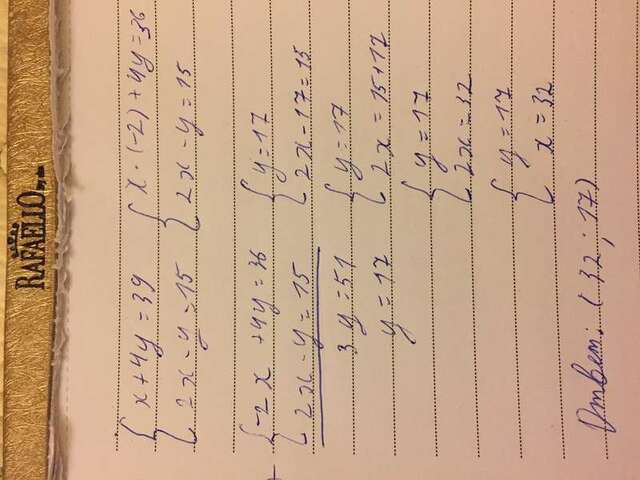 { x + 4y = 39
{ 2x - y = 15
{ x · (-2) + 4y = 36
{ 2x - y = 15
{ -2x + 4y = 36
{ 2x - y = 15
3y = 51
y = 17
{ y = 17
{ 2x - 17 = 15
{ y = 17
{ 2x = 15 + 17
{ y = 17
{ 2x = 32
{ y = 17
{ x = 32
Ответ: (32; 17)
RAFAELLO